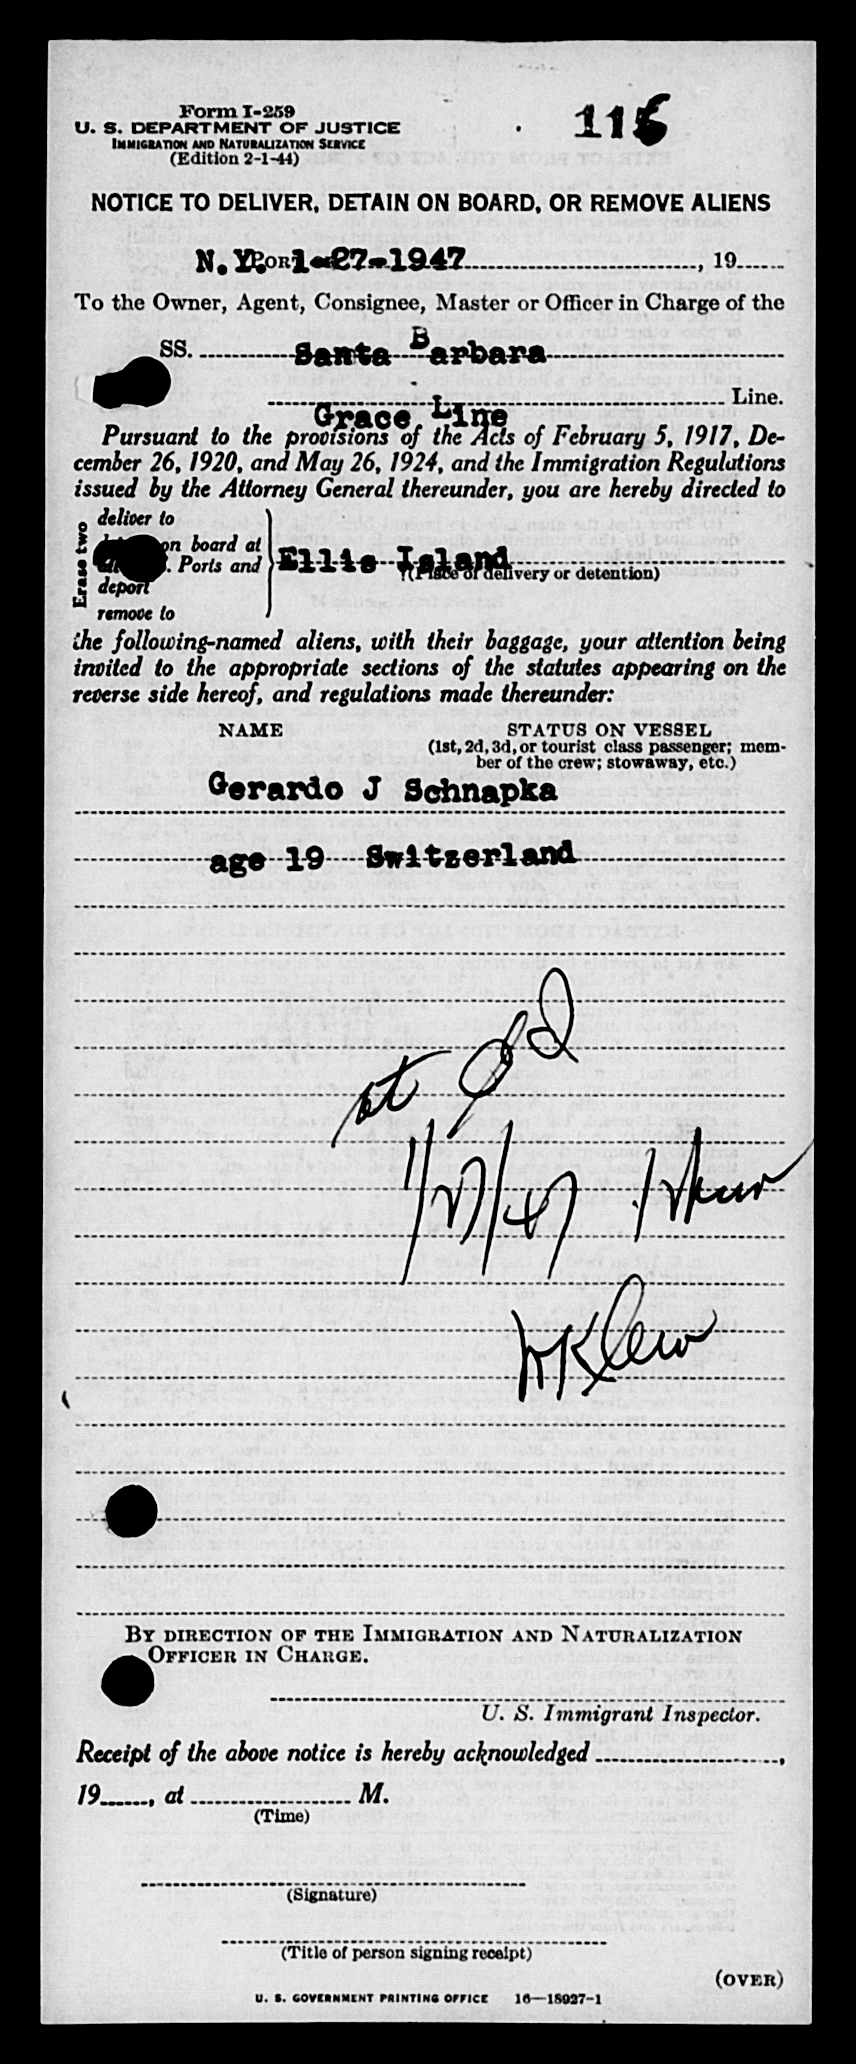 Form I-259
U. S. DEPARTMENT OF JUSTICE
IMMIGRATION AND NATURALIZATION SERVICE
(Edition 2-1-44)
116
NOTICE TO DELIVER, DETAIN ON BOARD, OR REMOVE ALIENS
N. Y. PORT 1-27-1947, 19
To the Owner, Agent, Consignee, Master or Officer in Charge of the
SS. Santa Barbara
Line.
Grace Line
Pursuant to the provisions of the Acts of February 5, 1917, De-
cember 26, 1920, and May 26, 1924, and the Immigration Regulations
issued by the Attorney General thereunder, you are hereby directed to
Erase two
deliver to
on board at
Ports and
deport
remove to
Ellis Island
(Place of delivery or detention)
the following-named aliens, with their baggage, your attention being
invited to the appropriate sections of the statutes appearing on the
reverse side hereof, and regulations made thereunder:
NAME STATUS ON VESSEL
(1st, 2d, 3d, or tourist class passenger; mem-
ber of the crew; stowaway, etc.)
Gerardo J Schnapka
age 19 Switzerland
1/27/47
BY DIRECTION OF THE IMMIGRATION AND NATURALIZATION
OFFICER IN CHARGE.
U. S. Immigrant Inspector.
Receipt of the above notice is hereby acknowledged ,
19 , at M.
(Time)
(Signature)
(Title of person signing receipt)
(OVER)
U. S. GOVERNMENT PRINTING OFFICE 16—18927-1